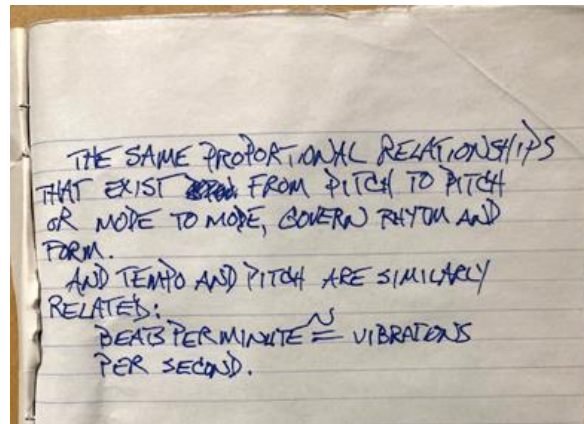 THE SAME PROPORTIONAL RELATIONSHIPS
THAT EXIST FROM PITCH TO PITCH
OR MODE TO MODE, GOVERN RHYTM AND
FORM.
AND TEMPO AND PITCH ARE SIMILARLY
RELATED:
BEATS PER MINUTE ≅ VIBRATIONS
PER SECOND.